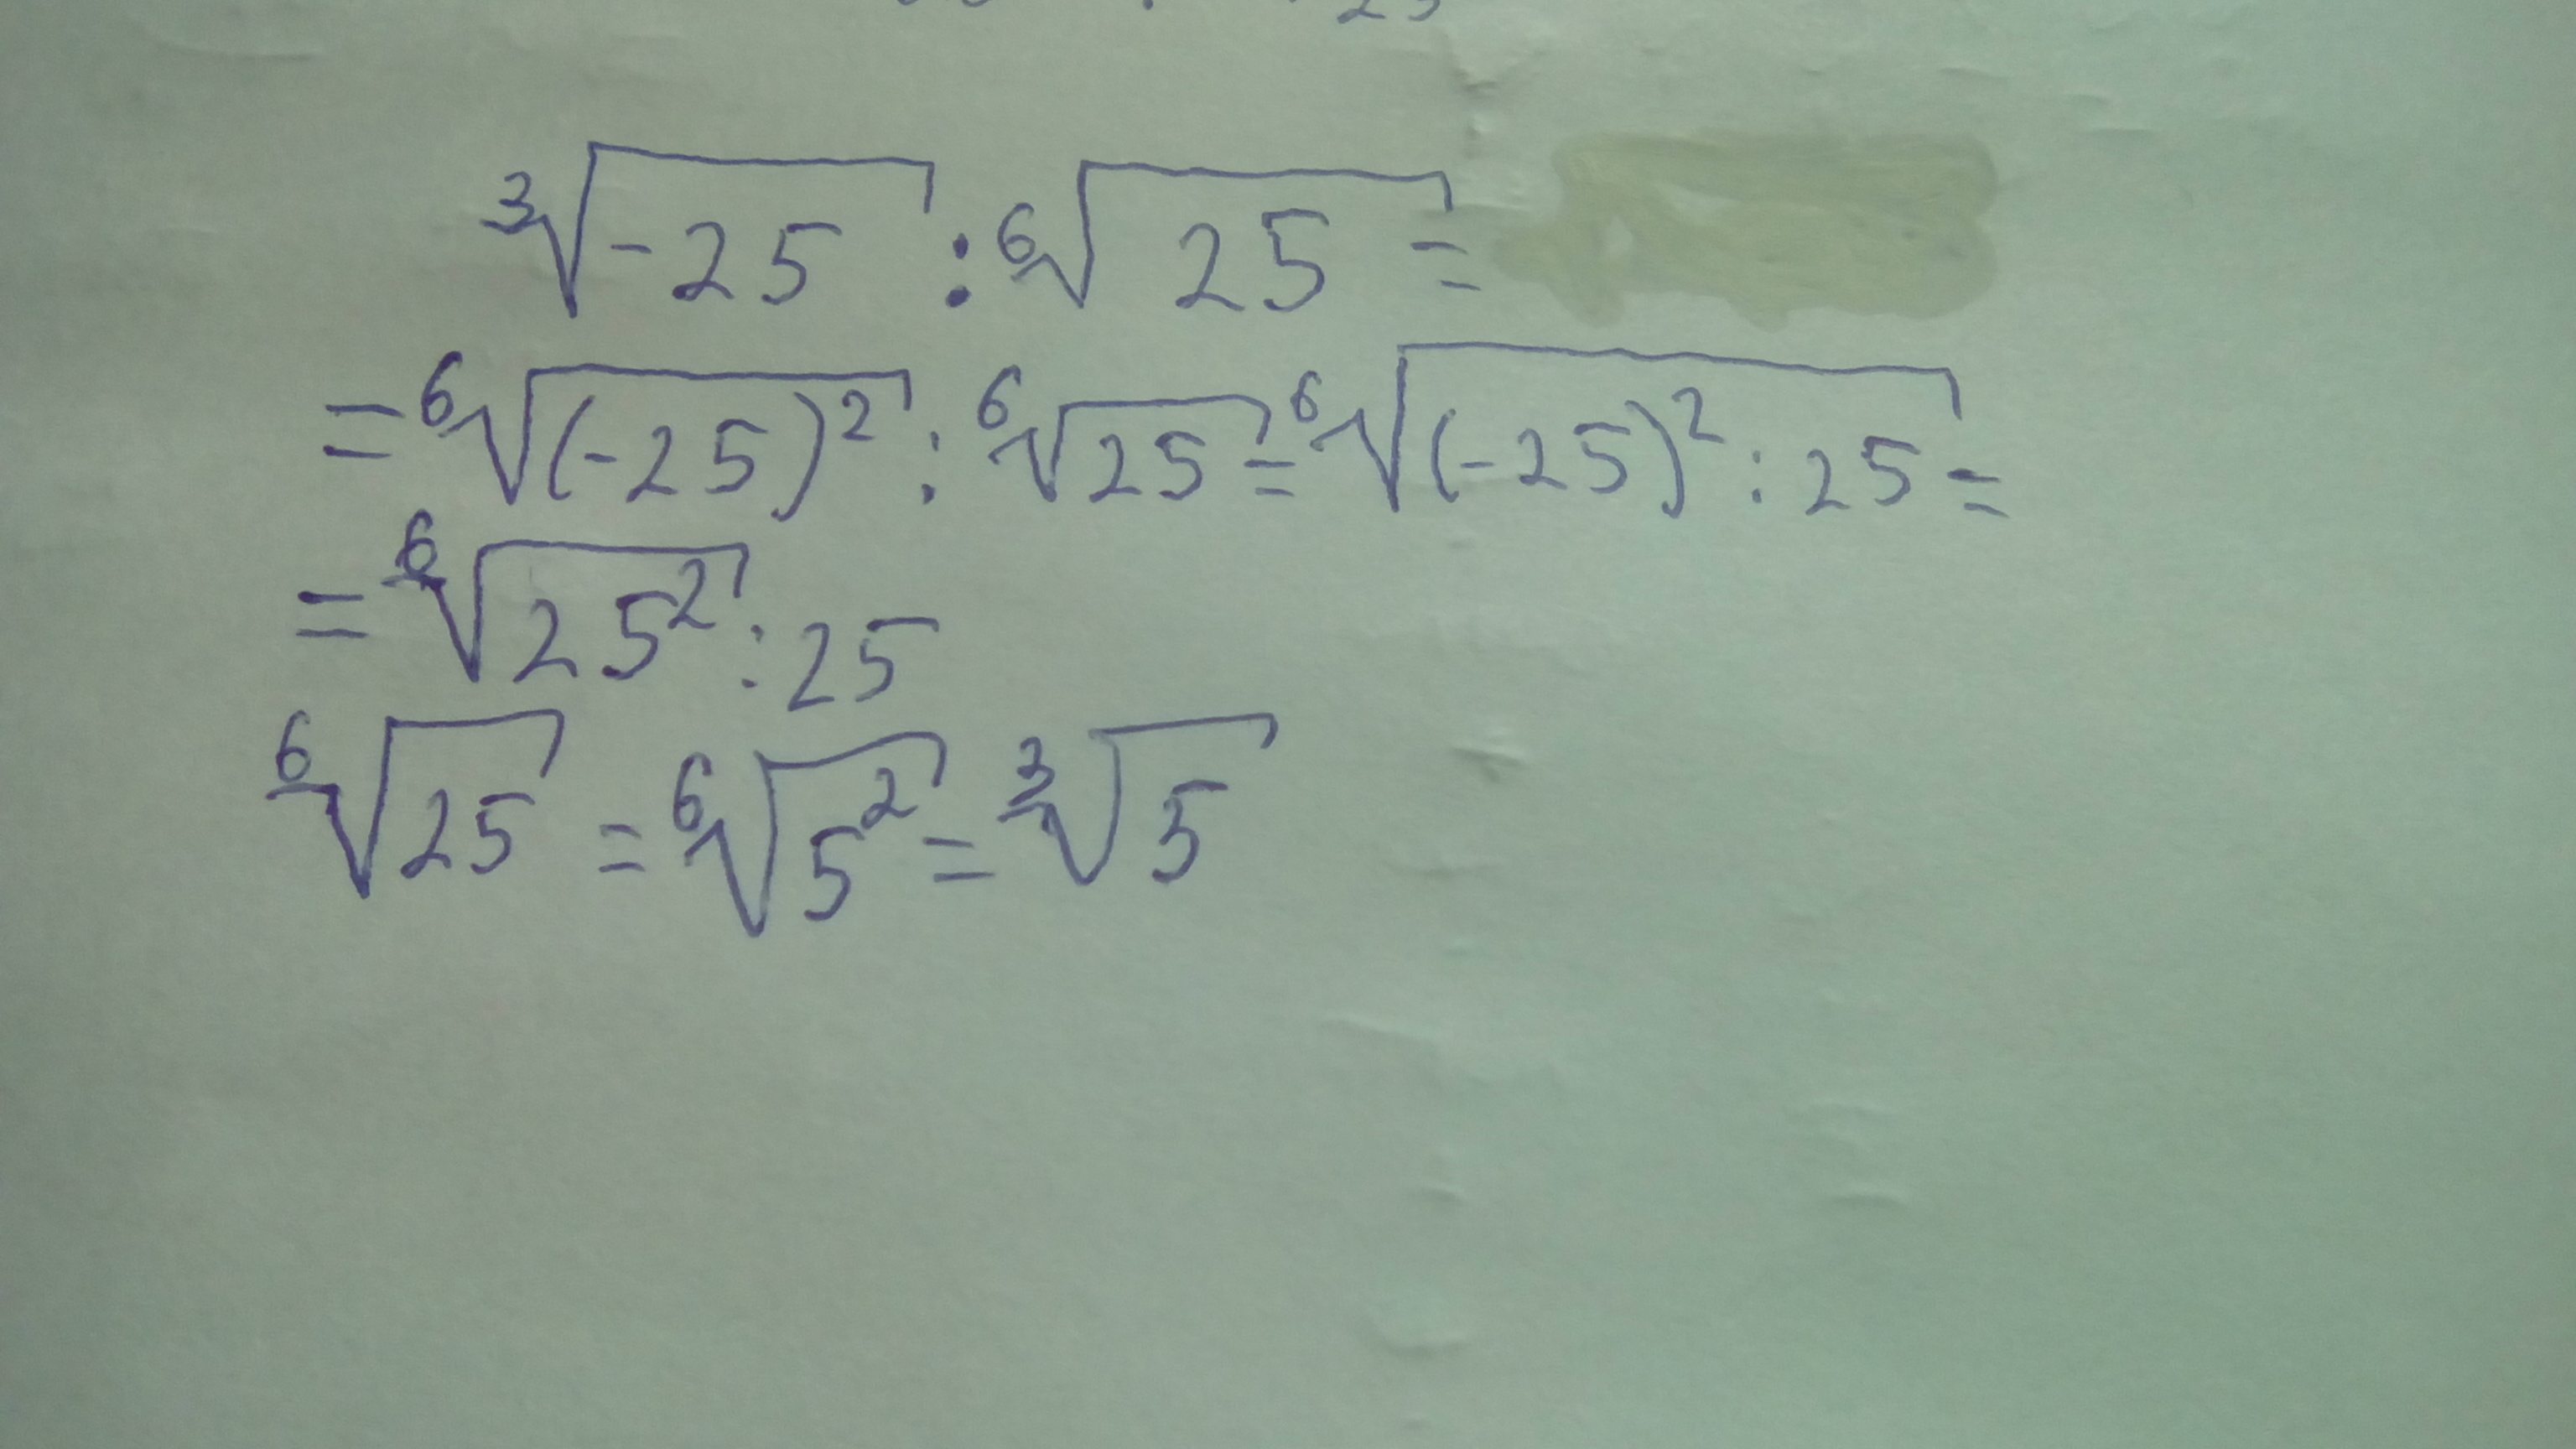 ∛-25 : ⁶√25 =
= ⁶√(-25)² : ⁶√25 = ⁶√(-25)² : 25 =
= ⁶√25² : 25
⁶√25 = ⁶√5² = ∛5